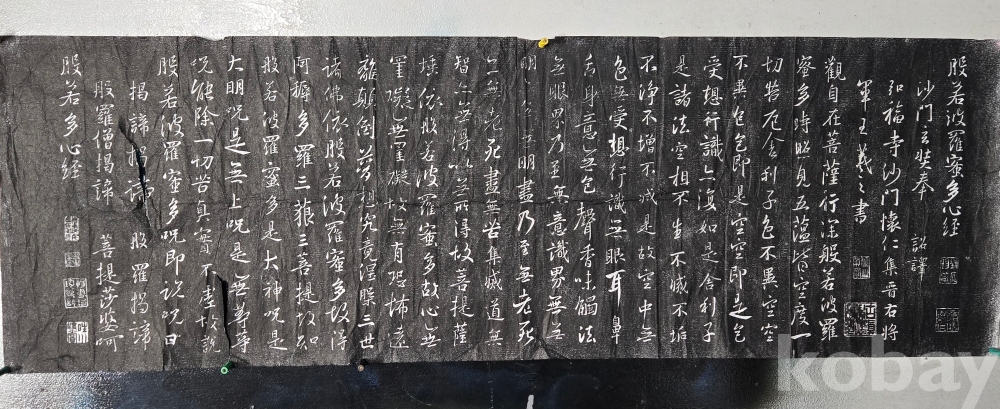 般若波羅蜜多心經
沙門玄奘奉 詔譯
弘福寺沙門懷仁集晉右將
軍王羲之書
觀自在菩薩行深般若波羅
蜜多時照見五蘊皆空度一
切苦厄舍利子色不異空空
不異色色即是空空即是色
受想行識亦復如是舍利子
是諸法空相不生不滅不垢
不淨不增不減是故空中無
色無受想行識無眼耳鼻
舌身意無色聲香味觸法
無眼界乃至無意識界無無
明亦無無明盡乃至無老死
亦無老死盡無苦集滅道無
智亦無得以無所得故菩提薩
埵依般若波羅蜜多故心無
罣礙無罣礙故無有恐怖遠
離顛倒夢想究竟涅槃三世
諸佛依般若波羅蜜多故得
阿耨多羅三藐三菩提故知
般若波羅蜜多是大神呪是
大明呪是無上呪是無等等
呪能除一切苦真實不虛故說
般若波羅蜜多呪即說呪曰
揭諦揭諦 般羅揭諦
般羅僧揭諦 菩提莎婆呵
般若多心經
kobay